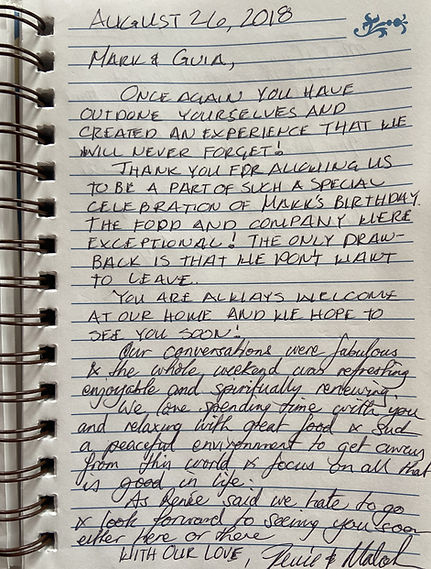 AUGUST 26, 2018
MARK & GUIA,
ONCE AGAIN YOU HAVE
OUTDONE YOURSELVES AND
CREATED AN EXPERIENCE THAT WE
WILL NEVER FORGET!
THANK YOU FOR ALLOWING US
TO BE A PART OF SUCH A SPECIAL
CELEBRATION OF MARK'S BIRTHDAY.
THE FOOD AND COMPANY WERE
EXCEPTIONAL! THE ONLY DRAW-
BACK IS THAT WE DON'T WANT
TO LEAVE.
YOU ARE ALWAYS WELCOME
AT OUR HOME AND WE HOPE TO
SEE YOU SOON!
Our conversations were fabulous
& the whole weekend was refreshing
enjoyable and spiritually renewing.
We love spending time with you
and relaxing with great food & such
a peaceful environment to get away
from this world & focus on all that
is good in life.
As Renee said we hate to go
& look forward to seeing you soon
either here or there
WITH OUR LOVE, &